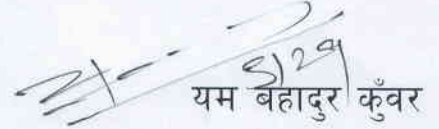 यम बहादुर कुँवर